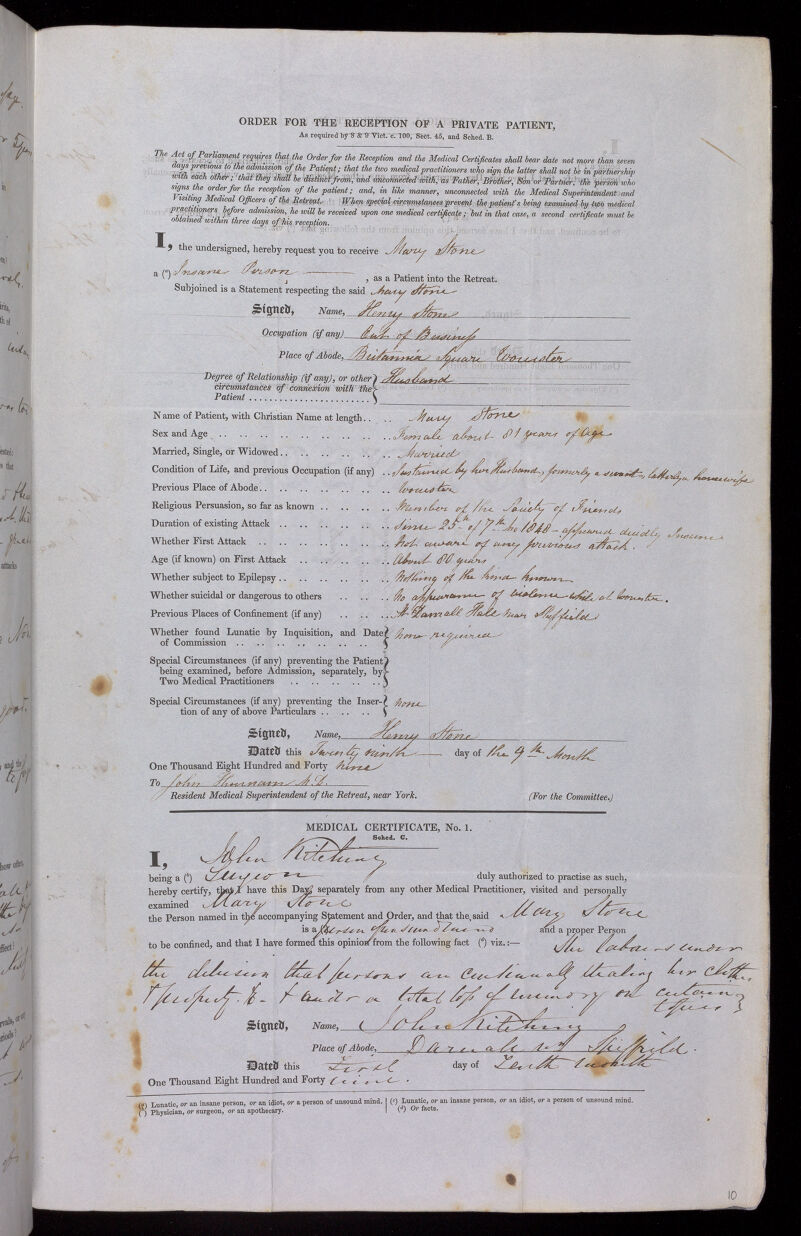 ORDER FOR THE RECEPTION OF A PRIVATE PATIENT,
As required by 8 & 9 Vict. c. 100, Sect. 45, and Sched. B.
The Act of Parliament requires that the Order for the Reception and the Medical Certificates shall bear date not more than seven
days previous to the admission of the Patient; that the two medical practitioners who sign the latter shall not be in partnership
with each other; that they shall be distinct from, and unconnected with, as Father, Brother, Son or Partner, the person who
signs the order for the reception of the patient; and, in like manner, unconnected with the Medical Superintendent and
Visiting Medical Officers of the Retreat. When special circumstances prevent the patient's being examined by two medical
practitioners before admission, he will be received upon one medical certificate; but in that case, a second certificate must be
obtained within three days of his reception.
I, the undersigned, hereby request you to receive Mary Stone
a (a) Insane Person , as a Patient into the Retreat.
Subjoined is a Statement respecting the said Mary Stone
Signed, Name, Henry Stone
Occupation (if any) Out of Business
Place of Abode, Britannia Square Worcester
Degree of Relationship (if any), or other Husband
circumstances of connexion with the
Patient
Name of Patient, with Christian Name at length Mary Stone
Sex and Age Female about 81 years of Age
Married, Single, or Widowed Married
Condition of Life, and previous Occupation (if any) Sustained by her Husband, formerly a servant, latterly a housewife
Previous Place of Abode Worcester
Religious Persuasion, so far as known Member of the Society of Friends
Duration of existing Attack Since 25th of 7th mo 1848 - appeared decidedly Insane
Whether First Attack Not aware of any previous attack.
Age (if known) on First Attack About 80 years
Whether subject to Epilepsy Nothing of the kind known
Whether suicidal or dangerous to others No appearance of violence while at Worcester.
Previous Places of Confinement (if any) At Darnall Hall near Sheffield
Whether found Lunatic by Inquisition, and Date none required
of Commission
Special Circumstances (if any) preventing the Patient
being examined, before Admission, separately, by
Two Medical Practitioners
Special Circumstances (if any) preventing the Inser- none
tion of any of above Particulars
Signed, Name, Henry Stone
Dated this Twenty ninth day of the 9th Month
One Thousand Eight Hundred and Forty nine
To John Thurnam M.D.
Resident Medical Superintendent of the Retreat, near York. (For the Committee.)
MEDICAL CERTIFICATE, No. 1.
Sched. C.
I, John Kitching
being a (b) Surgeon duly authorized to practise as such,
hereby certify, that I have this Day, separately from any other Medical Practitioner, visited and personally
examined Mary Stone
the Person named in the accompanying Statement and Order, and that the said Mary Stone
is a person of unsound mind and a proper Person
to be confined, and that I have formed this opinion from the following fact (d) viz.:— She labours under
the delusion that persons are continually stealing her clothes
& property &c - & under a total loss of memory on certain
topics
Signed, Name, John Kitching
Place of Abode, Darnall nr Sheffield.
Dated this First day of Tenth month
One Thousand Eight Hundred and Forty nine.
(a) Lunatic, or an insane person, or an idiot, or a person of unsound mind.
(b) Physician, or surgeon, or an apothecary.
(c) Lunatic, or an insane person, or an idiot, or a person of unsound mind.
(d) Or facts.
10